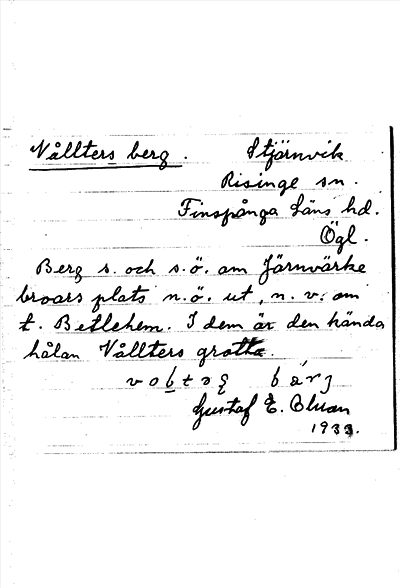 Vållters berg. Stjärnvik
Risinge sn.
Finspånga Läns hd.
Ögl.
Berg s. och s.ö. om Järnvärke
broars plats n.ö. ut, n.v. om
t. Betlehem. I dem är den kända
hålan Vållters grotta.
Gustaf E.
1933.